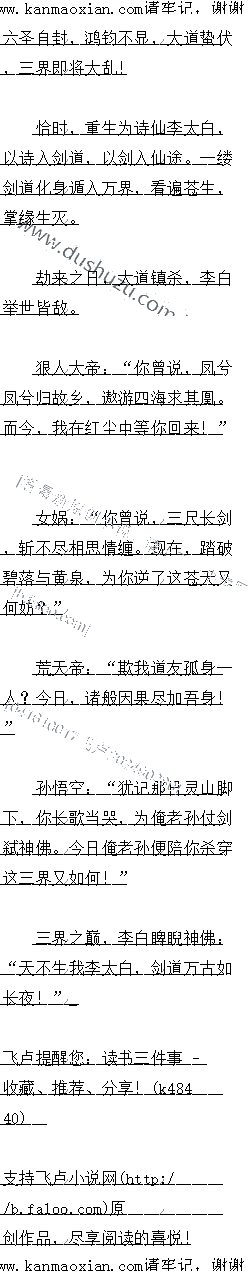 www.kanmaoxian.com请牢记，谢谢
六圣自封，鸿钧不显，大道蛰伏
，三界即将大乱！
恰时，重生为诗仙李太白，
以诗入剑道，以剑入仙途。一缕
剑道化身遁入万界，看遍苍生，
掌缘生灭。
www.dushuzu.com
劫来之日，大道镇杀，李白
举世皆敌。
狠人大帝：“你曾说，凤兮
凤兮归故乡，遨游四海求其凰。
而今，我在红尘中等你回来！”
女娲：“你曾说，三尺长剑
，斩不尽相思情缠。现在，踏破
碧落与黄泉，为你逆了这苍天又
何妨？”
荒天帝：“欺我道友孤身一
人？今日，诸般因果尽加吾身！
”
孙悟空：“犹记那日灵山脚
下，你长歌当哭，为俺老孙仗剑
弑神佛。今日俺老孙便陪你杀穿
这三界又如何！”
三界之巅，李白睥睨神佛：
“天不生我李太白，剑道万古如
长夜！”
飞卢提醒您：读书三件事 -
收藏、推荐、分享！(k484
40)
支持飞卢小说网(http:/
/b.faloo.com)原
创作品，尽享阅读的喜悦！
www.kanmaoxian.com请牢记，谢谢